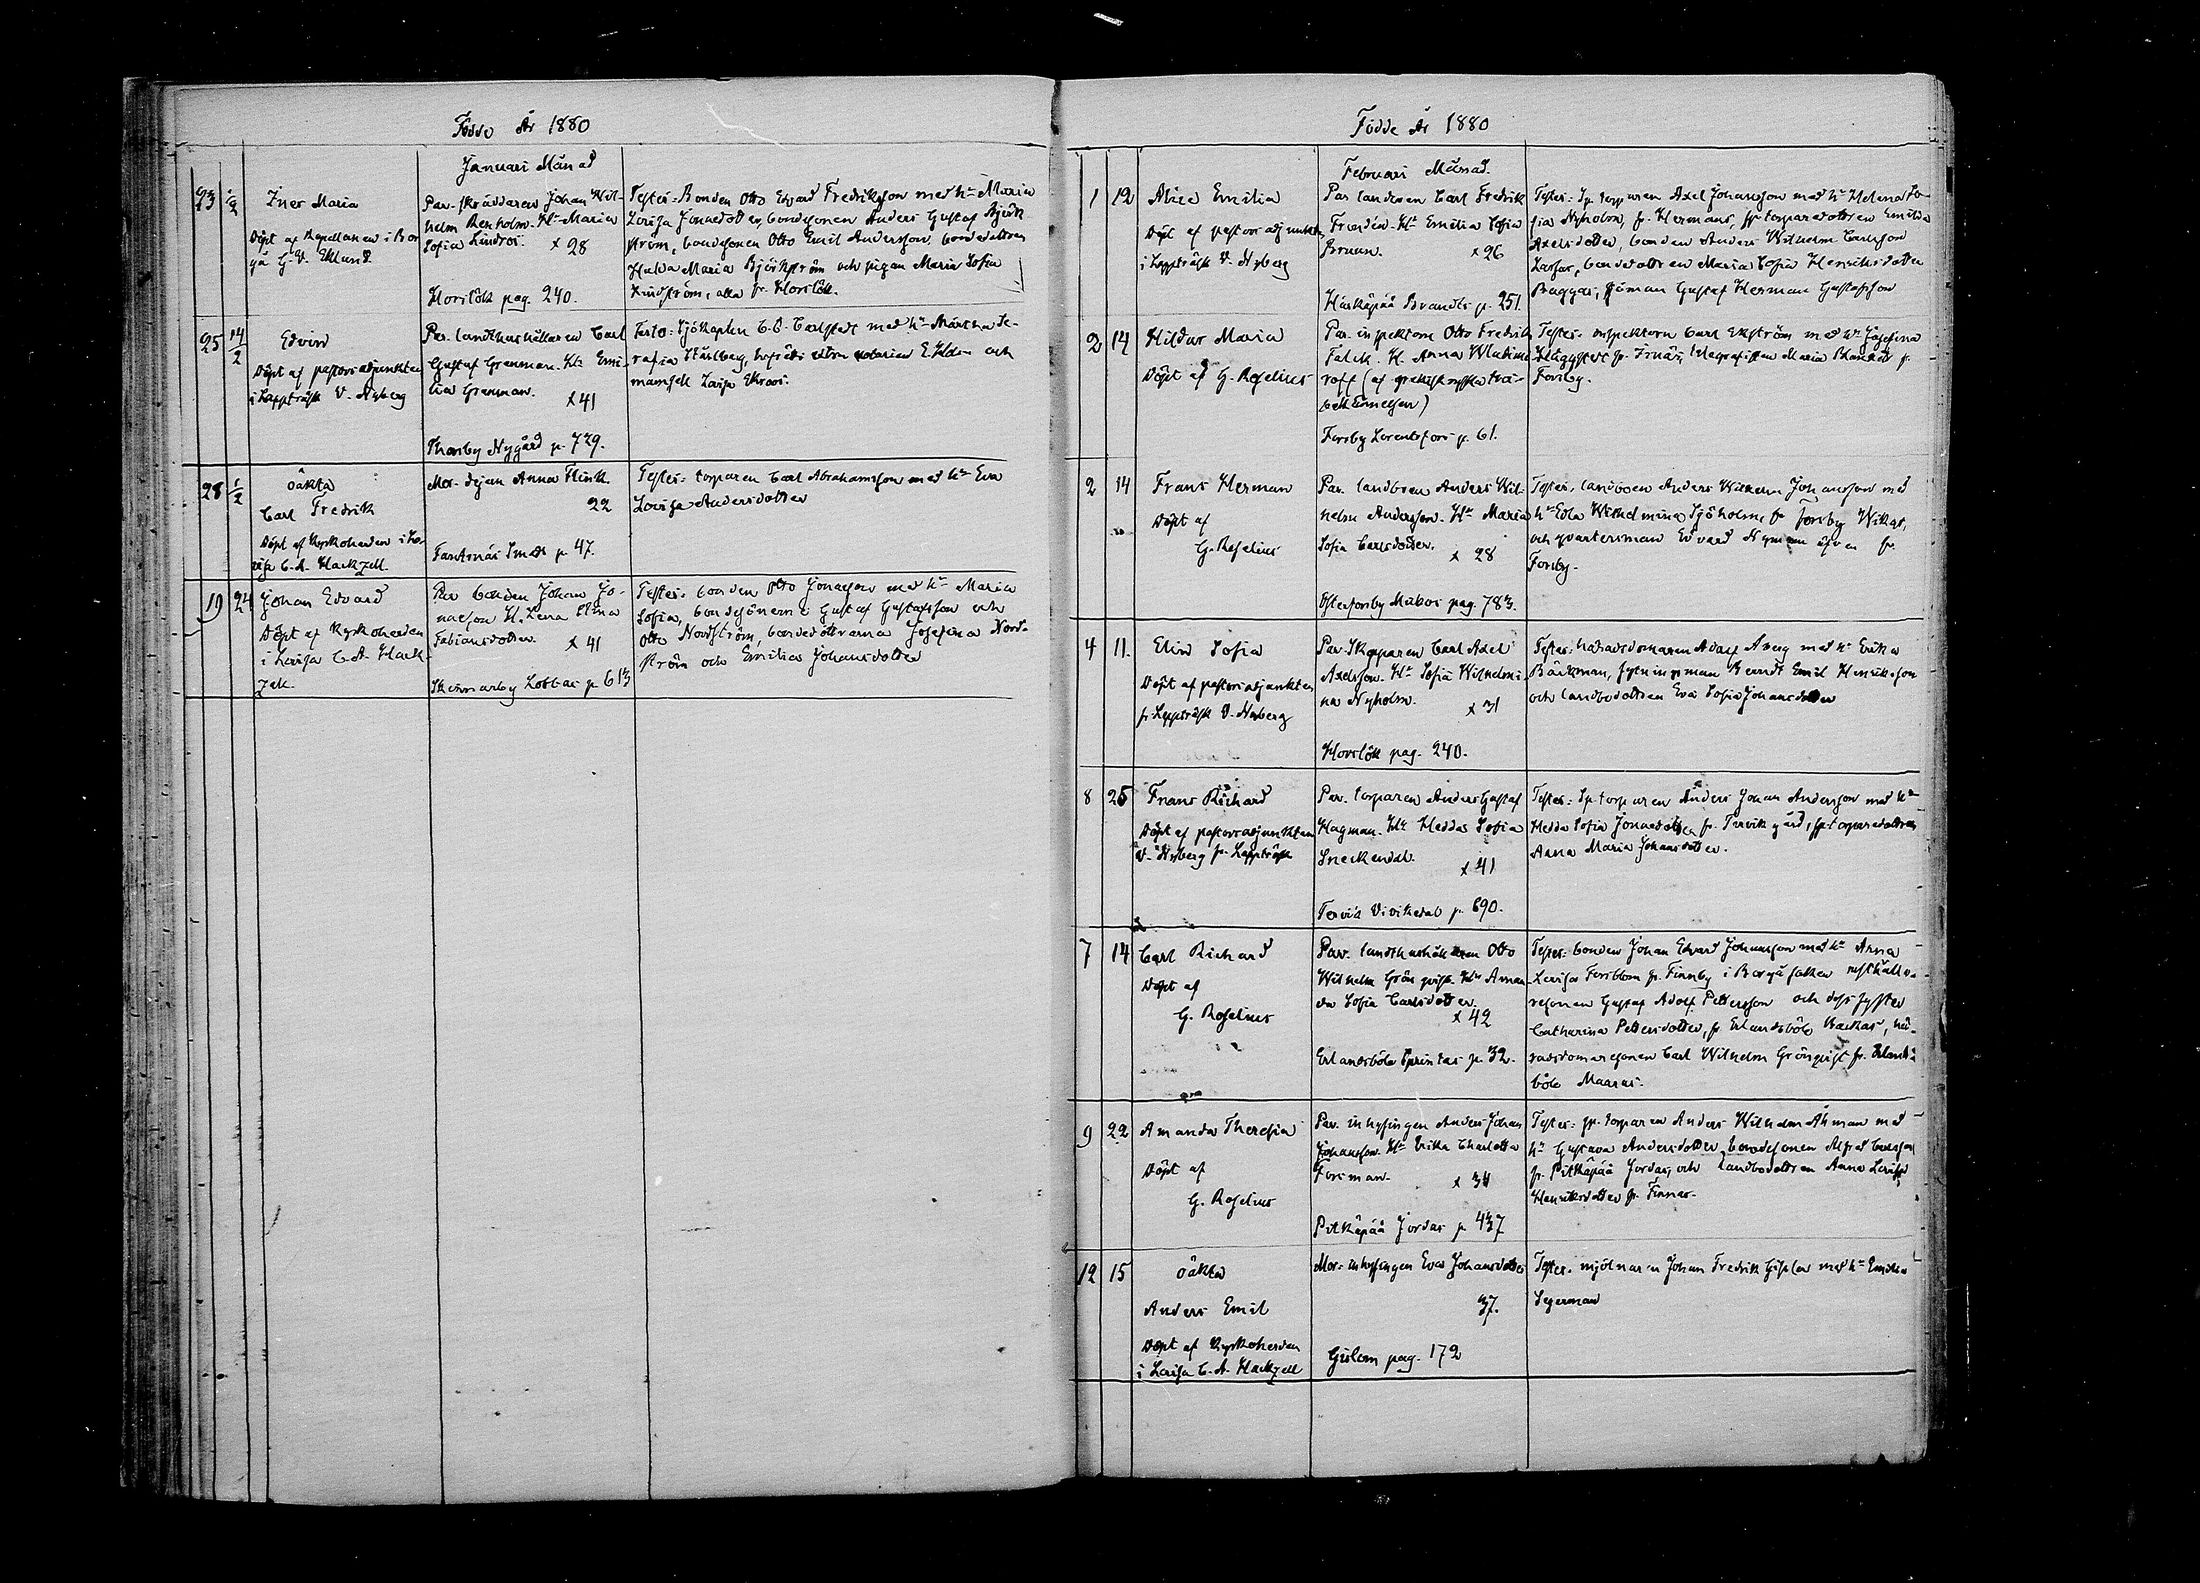 Födde År 1880
Januari Månad
23 1/2 Iner Maria
Döpt af Kapellanen i Bor
gå G. V. Eklund
Par. skräddaren Johan Wil-
helm Renholm. H:u Maria
Sofia Lindros. x 28
Horslök pag. 240.
Testes: Bonden Otto Edvard Fredriksson med h:u Maria
Lovisa Jonaedotter, bondesonen Anders Gustaf Björk
ström, bondesonen Otto Emil Andersson, bondedottren
Hulda Maria Björkström och pigan Maria Sofia
Lindström, alla fr. Horslök.
25 14/2 Edvin
Döpt af pastorsadjunkten
i Lappträsk V. Nyberg
Par. landthushållaren Carl
Gustaf Grenman. H:u Emi-
lia Grenman. x 41
Thorsby Nygård p. 729.
Testes: Sjökapten C. G. Carlstedt med h:u Märtha Se-
rafia Kårlberg, notarien E. och
mamsell Lovisa Ekroos.
28 1/2 oäkta
Carl Fredrik
Döpt af Kyrkoherden i Lo-
visa C. A. Hackzell.
Mor. dejan Anna Flink.
22
Fantsnäs Smeds p 47.
Testes: torparen Carl Abrahamsson med h:u Eva
Lovisa Andersdotter
19 24 Johan Edvard
Döpt af Kyrkoherden
i Lovisa C. A. Hack-
zell.
Par bonden Johan Jo-
naeson H. Lena Stina
Fabiansdotter. x 41
Skinnarby Lobbas p 613
Testes: bonden Otto Jonaeson med h:u Maria
Sofia, bondesönerne Gustaf Gustafsson och
Otto Nordström, bondedöttrarna Josefina Nord-
ström och Emilia Johansdotter
Födde År 1880
Februari Månad.
1 12 Alice Emilia
Döpt af pastorsadjunkten
i Lappträsk V. Nyberg
Par landboen Carl Fredrik
Frondén. H:u Emilia Sofia
Bruun. x 26
Härkäpää Brandts p. 251.
Testes: Sp torparen Axel Johansson med h:u Helena So-
fia Nyholm, fr. Hermans, sp torparedottren Emilia
Axelsdotter, bonden Anders Wilhelm Carlsson
Lassas, bondedottren Maria Sofia Henriksdotter
Baggas, sjöman Gustaf Herman Gustafsson
2 14 Hildur Maria
Döpt af G. Roselius
Par. inspektorn Otto Fredrik
Falck. H. Anna Wladimi
roff (af grekisk ryska trå-
bekännelsen)
Forsby Lorentsfors p. 61.
Testes: inspektorn Carl Ekström med h:u Josefina
Häggqvist fr. telegrafisten Maria p.
Forsby.
2 14 Frans Herman
Döpt af
G. Roselius
Par. landboen Anders Wil-
helm Andersson. H:u Maria
Sofia Carlsdotter. x 28
Österforsby Mickos pag. 783.
Testes. landboen Anders Wilhelm Johansson med
h:u Edla Wilhelmina Sjöholm, fr Forsby Wikas,
och qvartersman Edvard Nyman äfven fr.
Forsby.
4 11. Elin Sofia
Döpt af pastorsadjunkten
fr. Lappträsk V. Nyberg
Par. Skepparen Carl Axel
Axelsson. H:u Sofia Wilhelmi-
na Nyholm. x 31
Horslök pag. 240.
Testes: häradsdomaren Adolf Åberg med h:u Erika
Bäckman, Berndt Emil Henriksson
och landbodottren Eva Sofia Johansdotter
8 25 Frans Richard
Döpt af pastorsadjunkten
V. Nyberg fr. Lappträsk
Par. torparen Anders Gustaf
Hagman. H:u Hedda Sofia
Sneckendal. x 41
Tervik Divikedal p. 690.
Testes: Sp torparen Anders Johan Andersson med h:u
Hedda Sofia Jonaedotter fr. Tervik gård, sp torparedottren
Anna Maria Johansdotter.
7 14 Carl Richard
Döpt af
G. Roselius
Par. landthushållaren Otto
Wilhelm Grönqvist. H:u Aman-
da Sofia Carlsdotter
x 42
Erlandsböle Sprintas p. 32.
Testes: bonden Johan Edvard Johansson med h:u Anna
Lovisa Forsblom fr. Finnby i Borgå socken rusthålla-
resonen Gustaf Adolf Pettersson och dess syster
Catharina Pettersdotter, fr Erlandsböle Backas, hä-
radsdomaresonen Carl Wilhelm Grönqvist fr. Erlands
böle Maaras.
9 22 Amanda Theresia
Döpt af
G. Roselius
Par. inhysingen Anders Johan
Johansson. H:u Erika Charlotta
Forsman. x 34
Pitkäpää Jordas p 437
Testes: sp. torparen Anders Wilhelm Åhman med
h:u Gustava Andersdotter, bondesonen Alfred Carlsson
fr. Pitkäpää Jordas, och landbodottren Anna Lovisa
Henriksdotter fr. Finnas.
12 15 oäkta
Anders Emil
Döpt af Kyrkoherden
i Lovisa C. A. Hackzell
Mor: inhysingen Eva Johansdotter
37.
Gislom pag. 172
Testes. mjölnaren Johan Fredrik Gisslow med h:u Emilia
Segerman